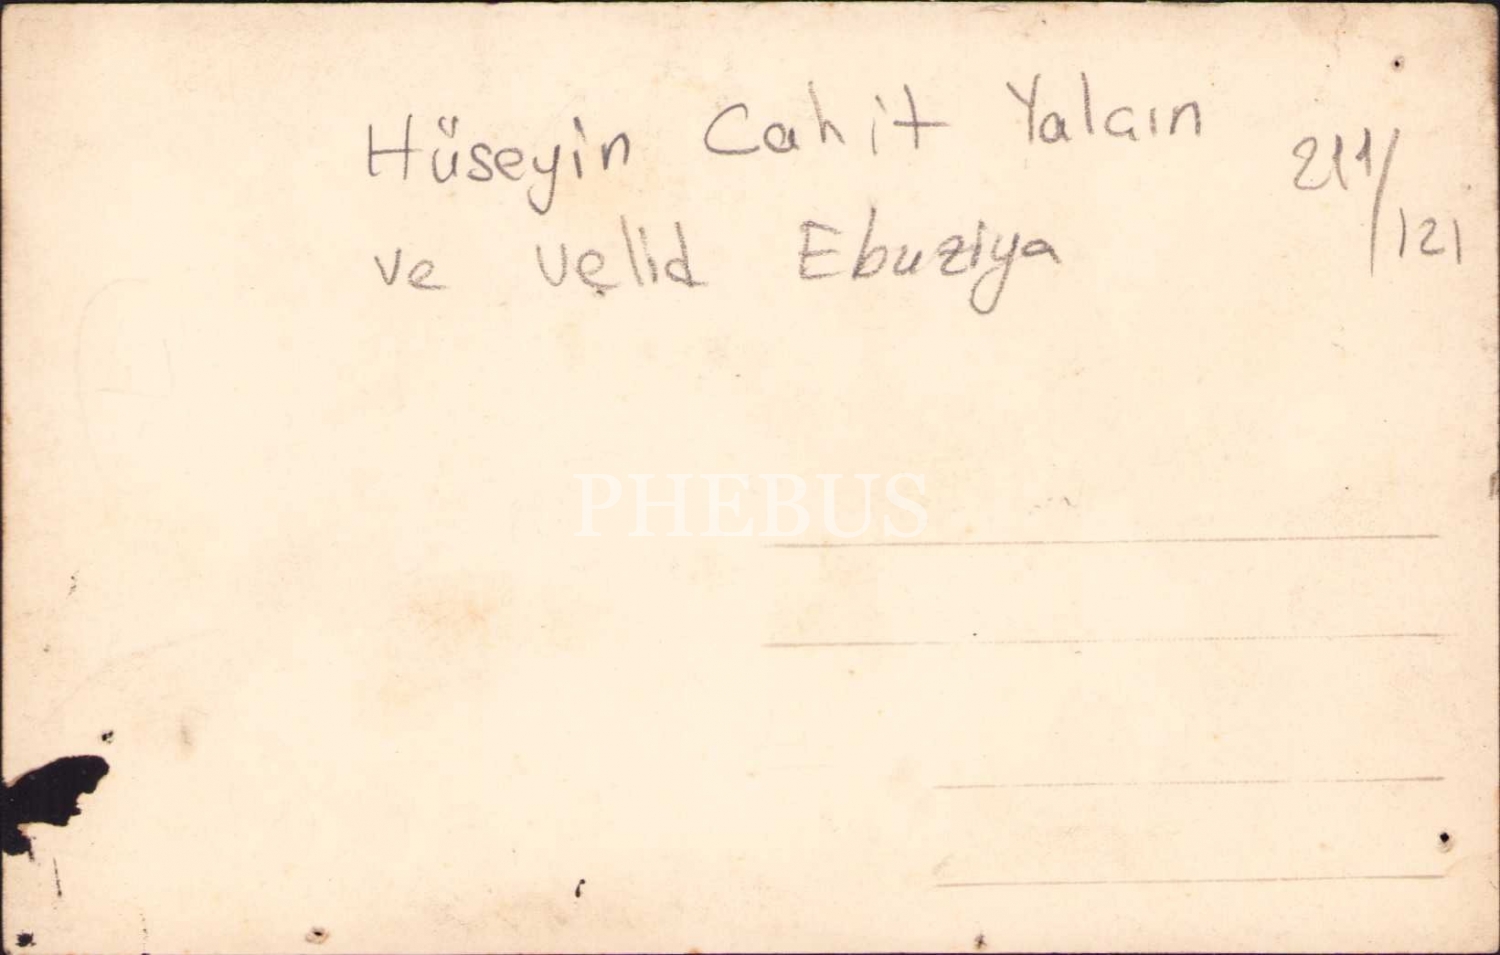 Hüseyin Cahit Yalcın
ve velid Ebuziya
211/121
PHEBUS